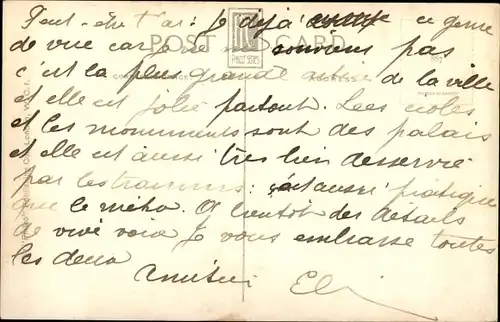 Peut-être t'ai-je déjà ce genre
de vue car je ne me souviens pas
POST CARD
c'est la plus grande artère de la ville
et elle est jolie partout. Les écoles
et les monuments sont des palais
et elle est aussi très bien desservie
par les tramways: c'est aussi pratique
que le métro. A bientôt des détails
de vive voix Je vous embrasse toutes
les deux